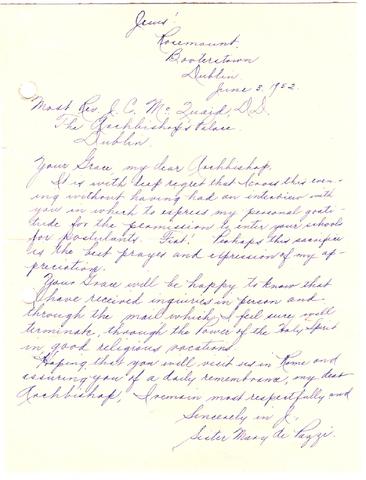 Jesus!
Rosemount.
Booterstown
Dublin.
June 3, 1952.
Most Rev. J. C. Mc Quaid, D.D.
The Archbishop's Palace.
Dublin.
Your Grace, my dear Archbishop,
It is with deep regret that I cross this even-
ing without having had an interview with
you in which to express my personal grati-
tude for the permission to enter your schools
for Postulants. Fiat! Perhaps this sacrifice
is the best prayer and expression of my ap-
preciation.
Your Grace will be happy to know that
I have received inquiries in person and
through the mail which, I feel sure, will
terminate, through the Power of the Holy Spirit
in good religious vocations.
Hoping that you will visit us in Rome and
assuring you of a daily remembrance, my dear
Archbishop, I remain most respectfully and
Sincerely in J.
Sister Mary de Pazzi.